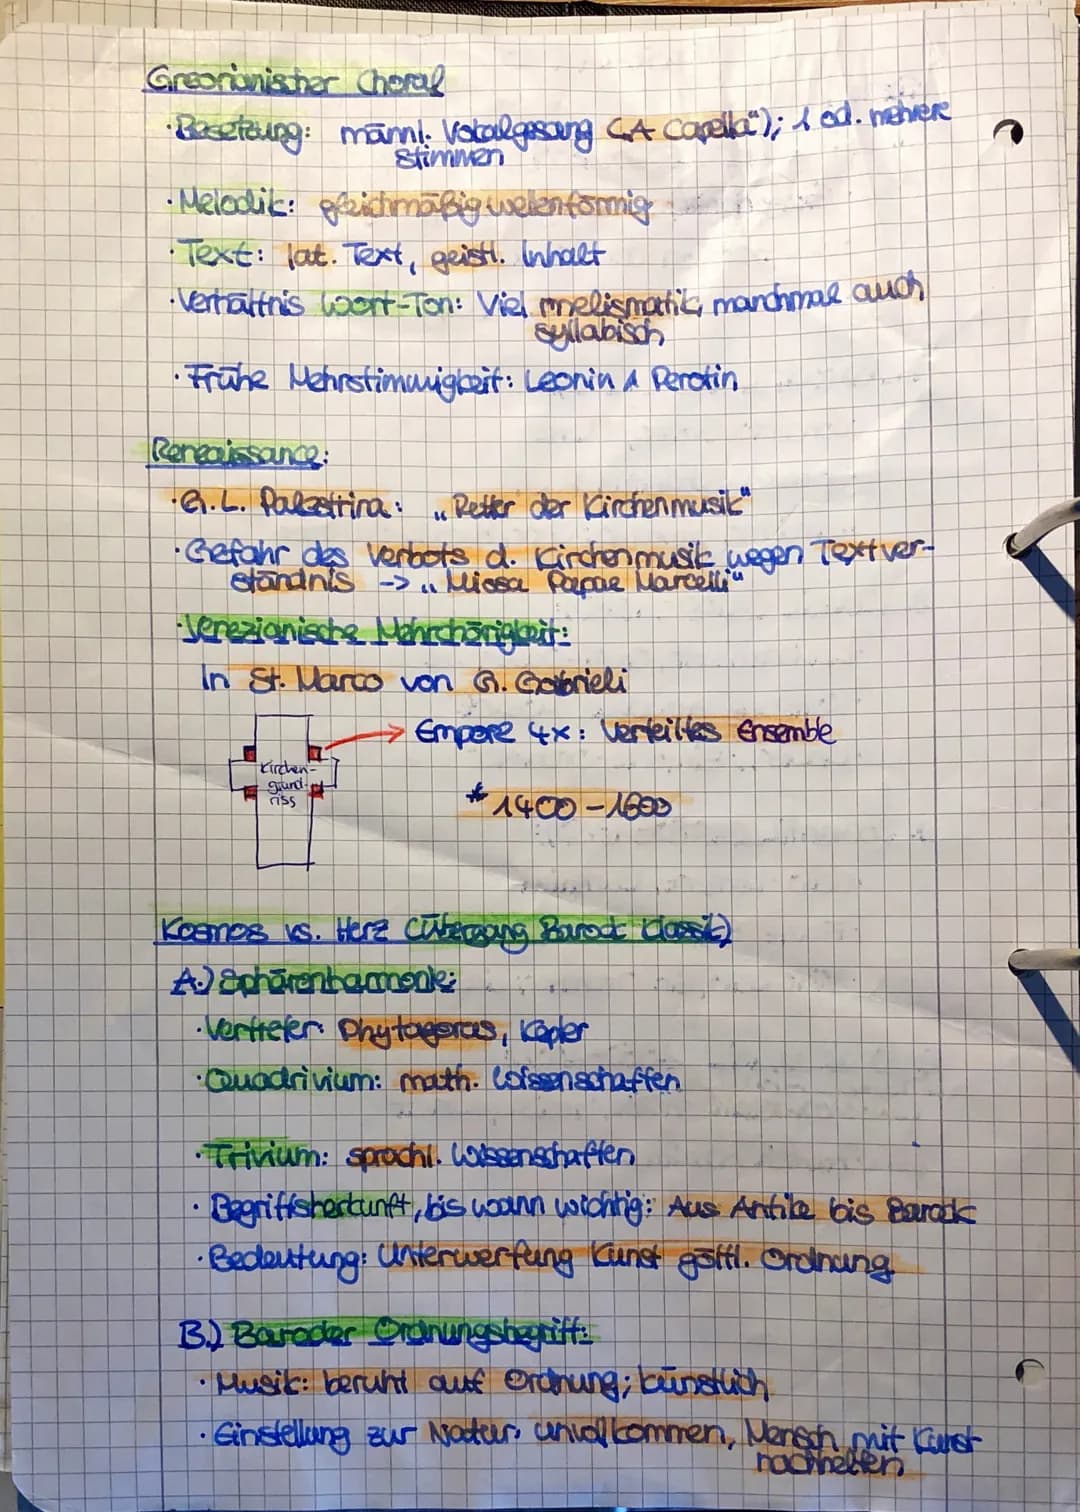 Greorianischer Choral
· Besetzung: männl. Vokalgesang („A Capella"); 1 od. mehrere
Stimmen
· Melodik: gleichmäßig wellenförmig
· Text: lat. Text, geistl. Inhalt
· Verhältnis Wort-Ton: Viel melismatik, manchmal auch
syllabisch
· Frühe Mehrstimmigkeit: Leonin & Perotin
Reneaissance:
· G. L. Palestrina: „Retter der Kirchenmusik"
· Gefahr des Verbots d. Kirchenmusik wegen Textver-
ständnis -> „Missa Papae Marcelli"
· Venezianische Mehrchörigkeit:
In St. Marco von G. Gabrieli
Empore 4x: Verteiltes Ensemble
Kirchen-
grund-
riss
* 1400 - 1600
Kosmos vs. Herz (Übergang Barock Klassik)
A.) Sphärenharmonie:
· Vertreter: Phytagoras, Kepler
· Quadrivium: math. Wissenschaften
· Trivium: sprachl. Wissenschaften
· Begriffsherkunft, bis wann wichtig: Aus Antike bis Barock
· Bedeutung: Unterwerfung Kunst göttl. Ordnung
B.) Barocker Ordnungsbegriff:
· Musik: beruht auf Ordnung; künstlich
· Einstellung zur Natur: unvollkommen, Mensch mit Kunst
nachhelfen